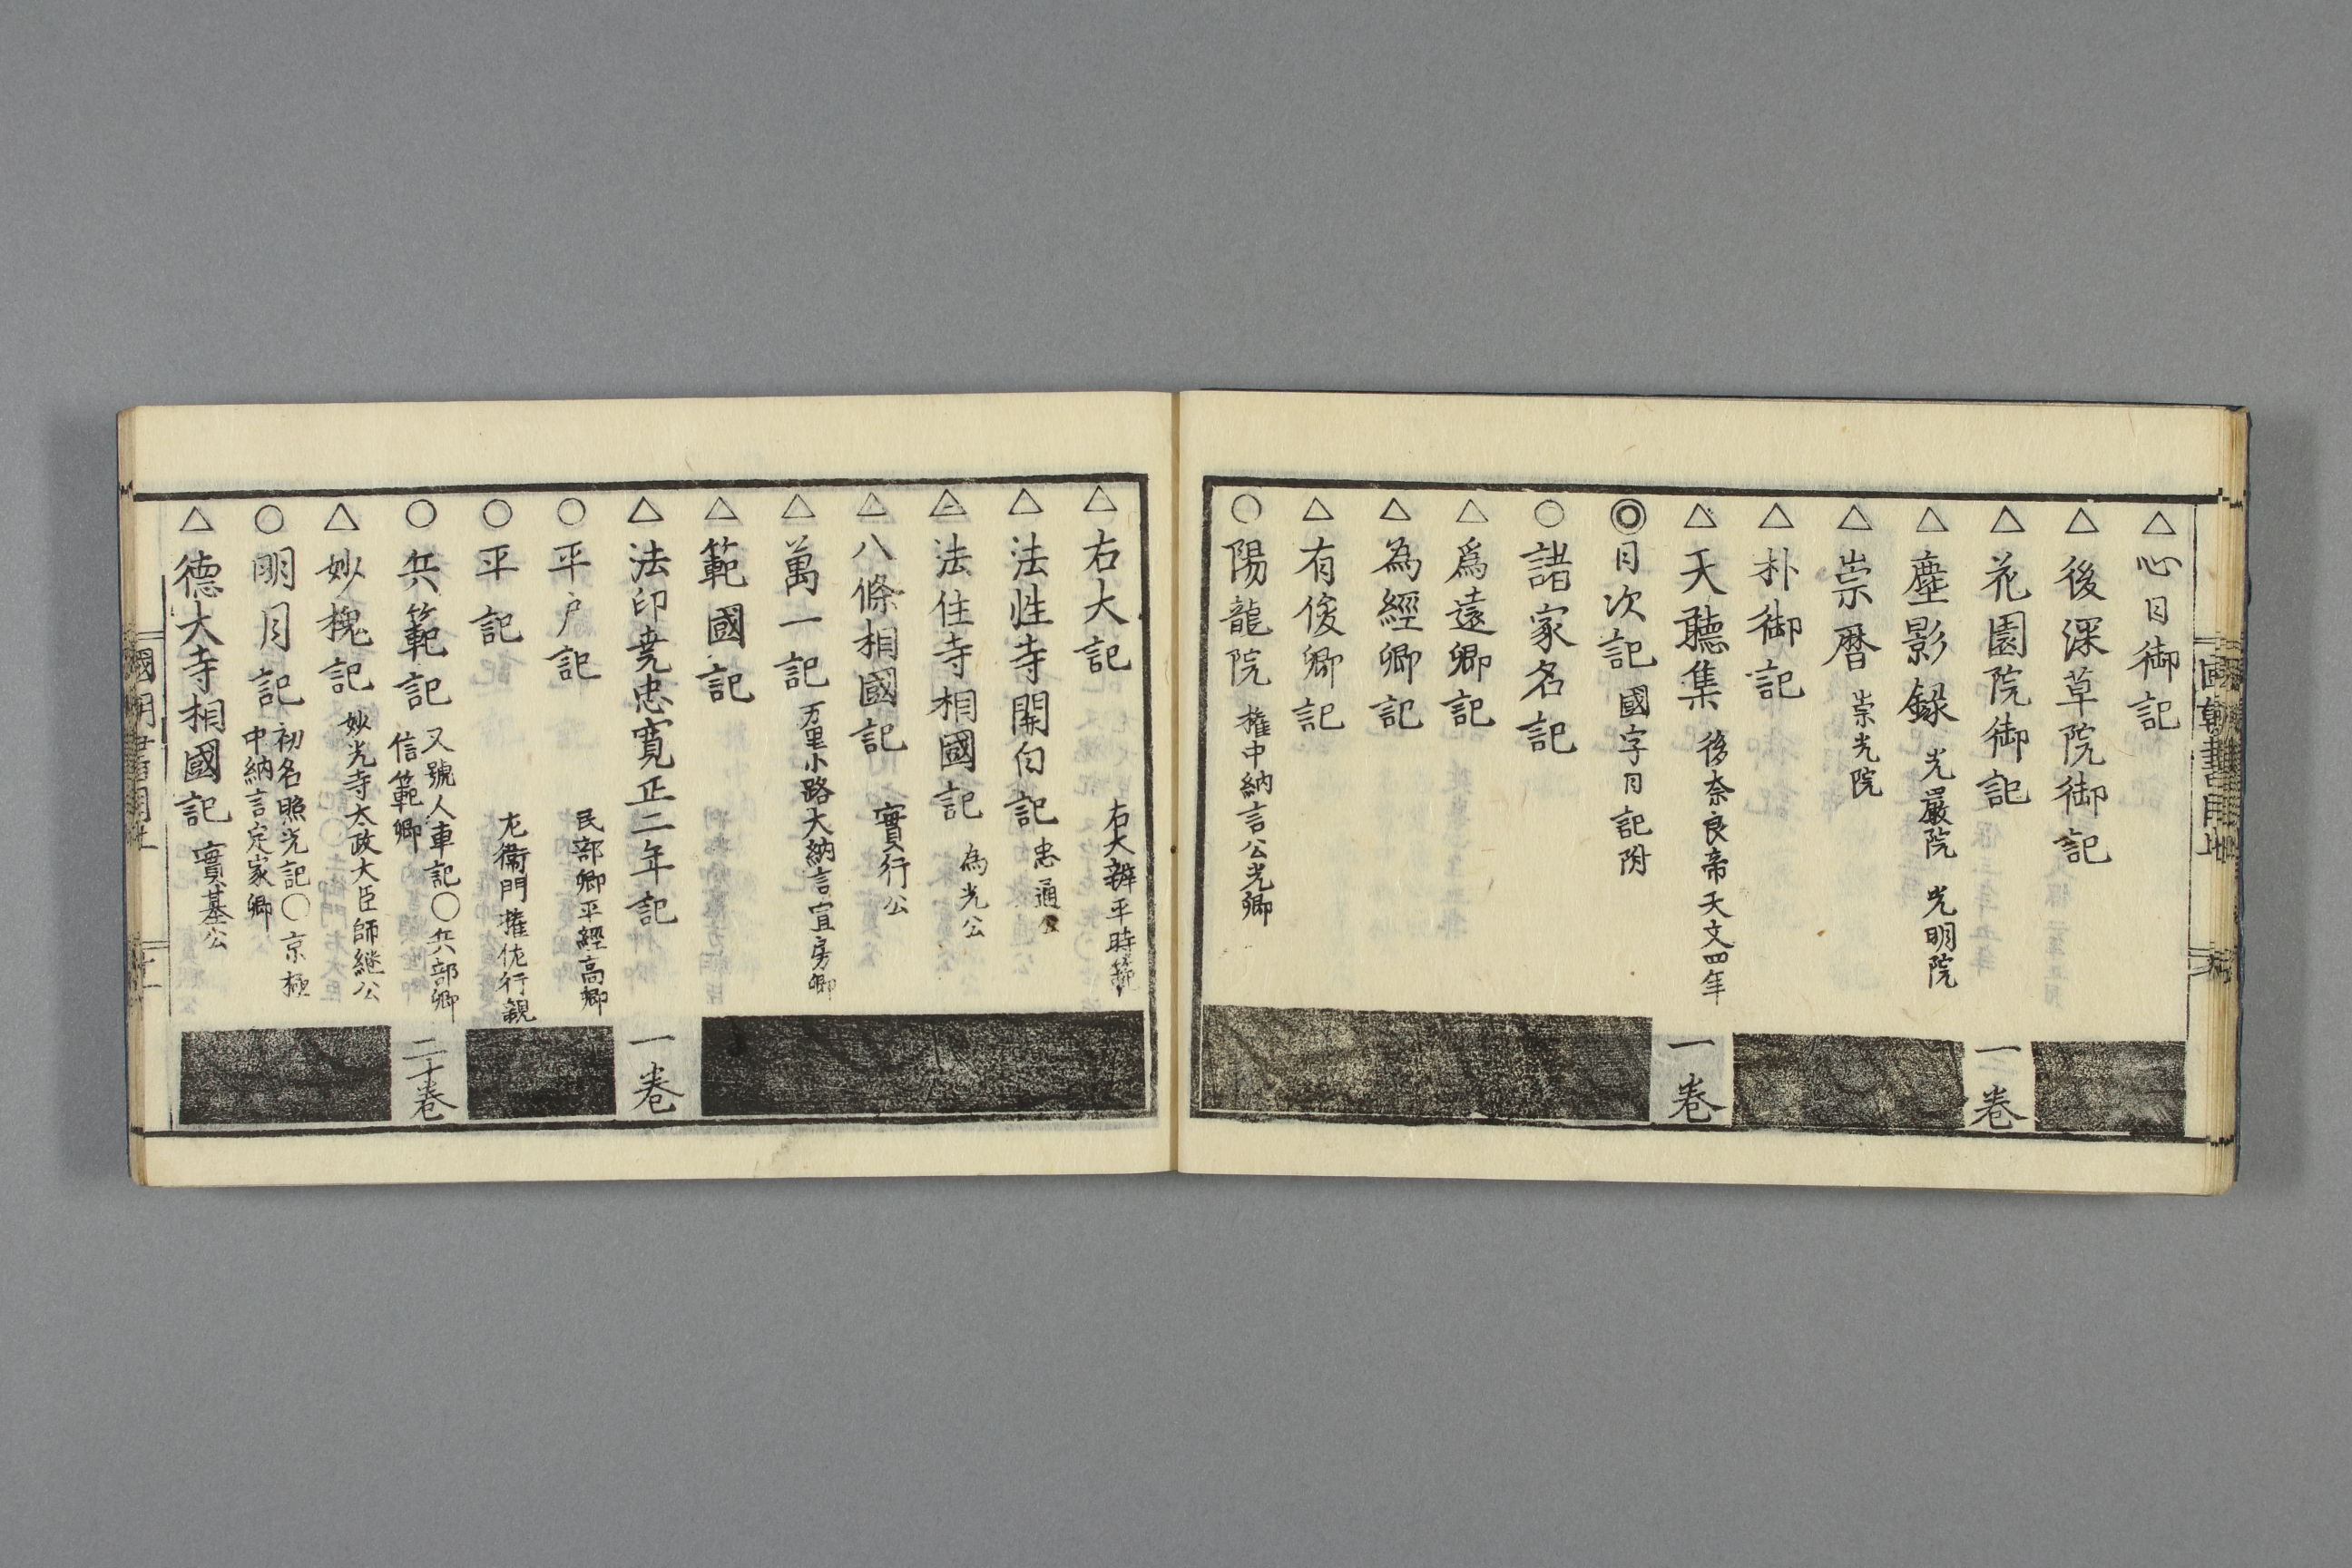 △心日御記
△後深草院御記
△花園院御記 一卷
△塵影録 光嚴院 光明院
△崇暦 崇光院
△朴御記
△天聽集 後奈良帝天文四年 一卷
◎日次記 國字日記附
○諸家名記
△爲遠卿記
△為經卿記
△有俊卿記
○陽龍院 權中納言公光卿
△右大記 右大辨平時範
△法性寺關白記 忠通公
△法住寺相國記 為光公
△八條相國記 實行公
△萬一記 万里小路大納言宣房卿
△範國記
△法印尭忠寛正二年記 一卷
○平戸記 民部卿平經高卿
○平記 左衞門權佐行親
○兵範記 又號人車記○兵部卿
信範卿 二十卷
△妙槐記 妙光寺太政大臣師継公
○明月記 初名照光記○京極
中納言定家卿
△德大寺相國記 實基公